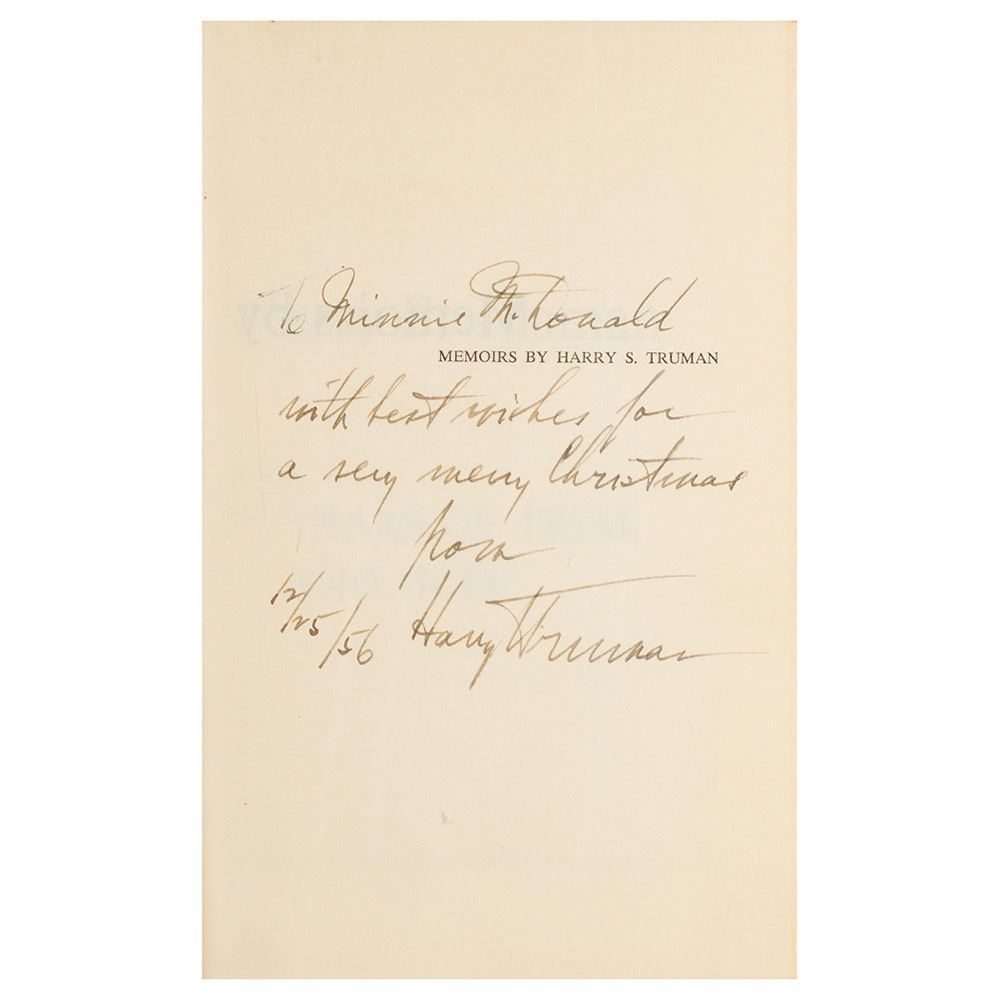 To Minnie McDonald
MEMOIRS BY HARRY S. TRUMAN
with best wishes for
a very merry Christmas
from
12/25/56 Harry Truman